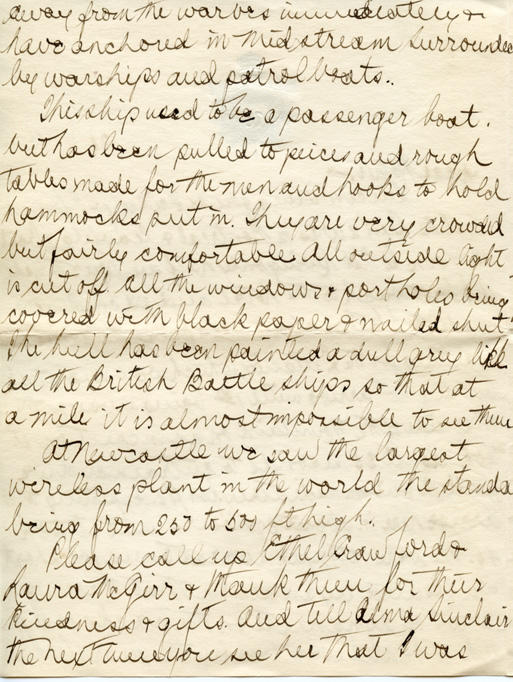 away from the warves immediately &
have anchored in midstream surrounded
by warships and patrol boats..
This ship used to be a passenger boat.
but has been pulled to peices and rough
tables made for the men and hooks to hold
hammocks put in. They are very crowded
but fairly comfortable All outside light
is cut off all the windows & port holes being
covered with black paper & nailed shut
The hull has been painted a dull grey like
all the British Battle ships so that at
a mile it is almost impossible to see them
At Newcastle we saw the largest
wireless plant in the world the standa
being from 250 to 500 ft high.
Please call up Ethel Crawford &
Laura McGirr & thank them for their
kindness & gifts. And tell Alma Sinclair
the next time you see her that I was